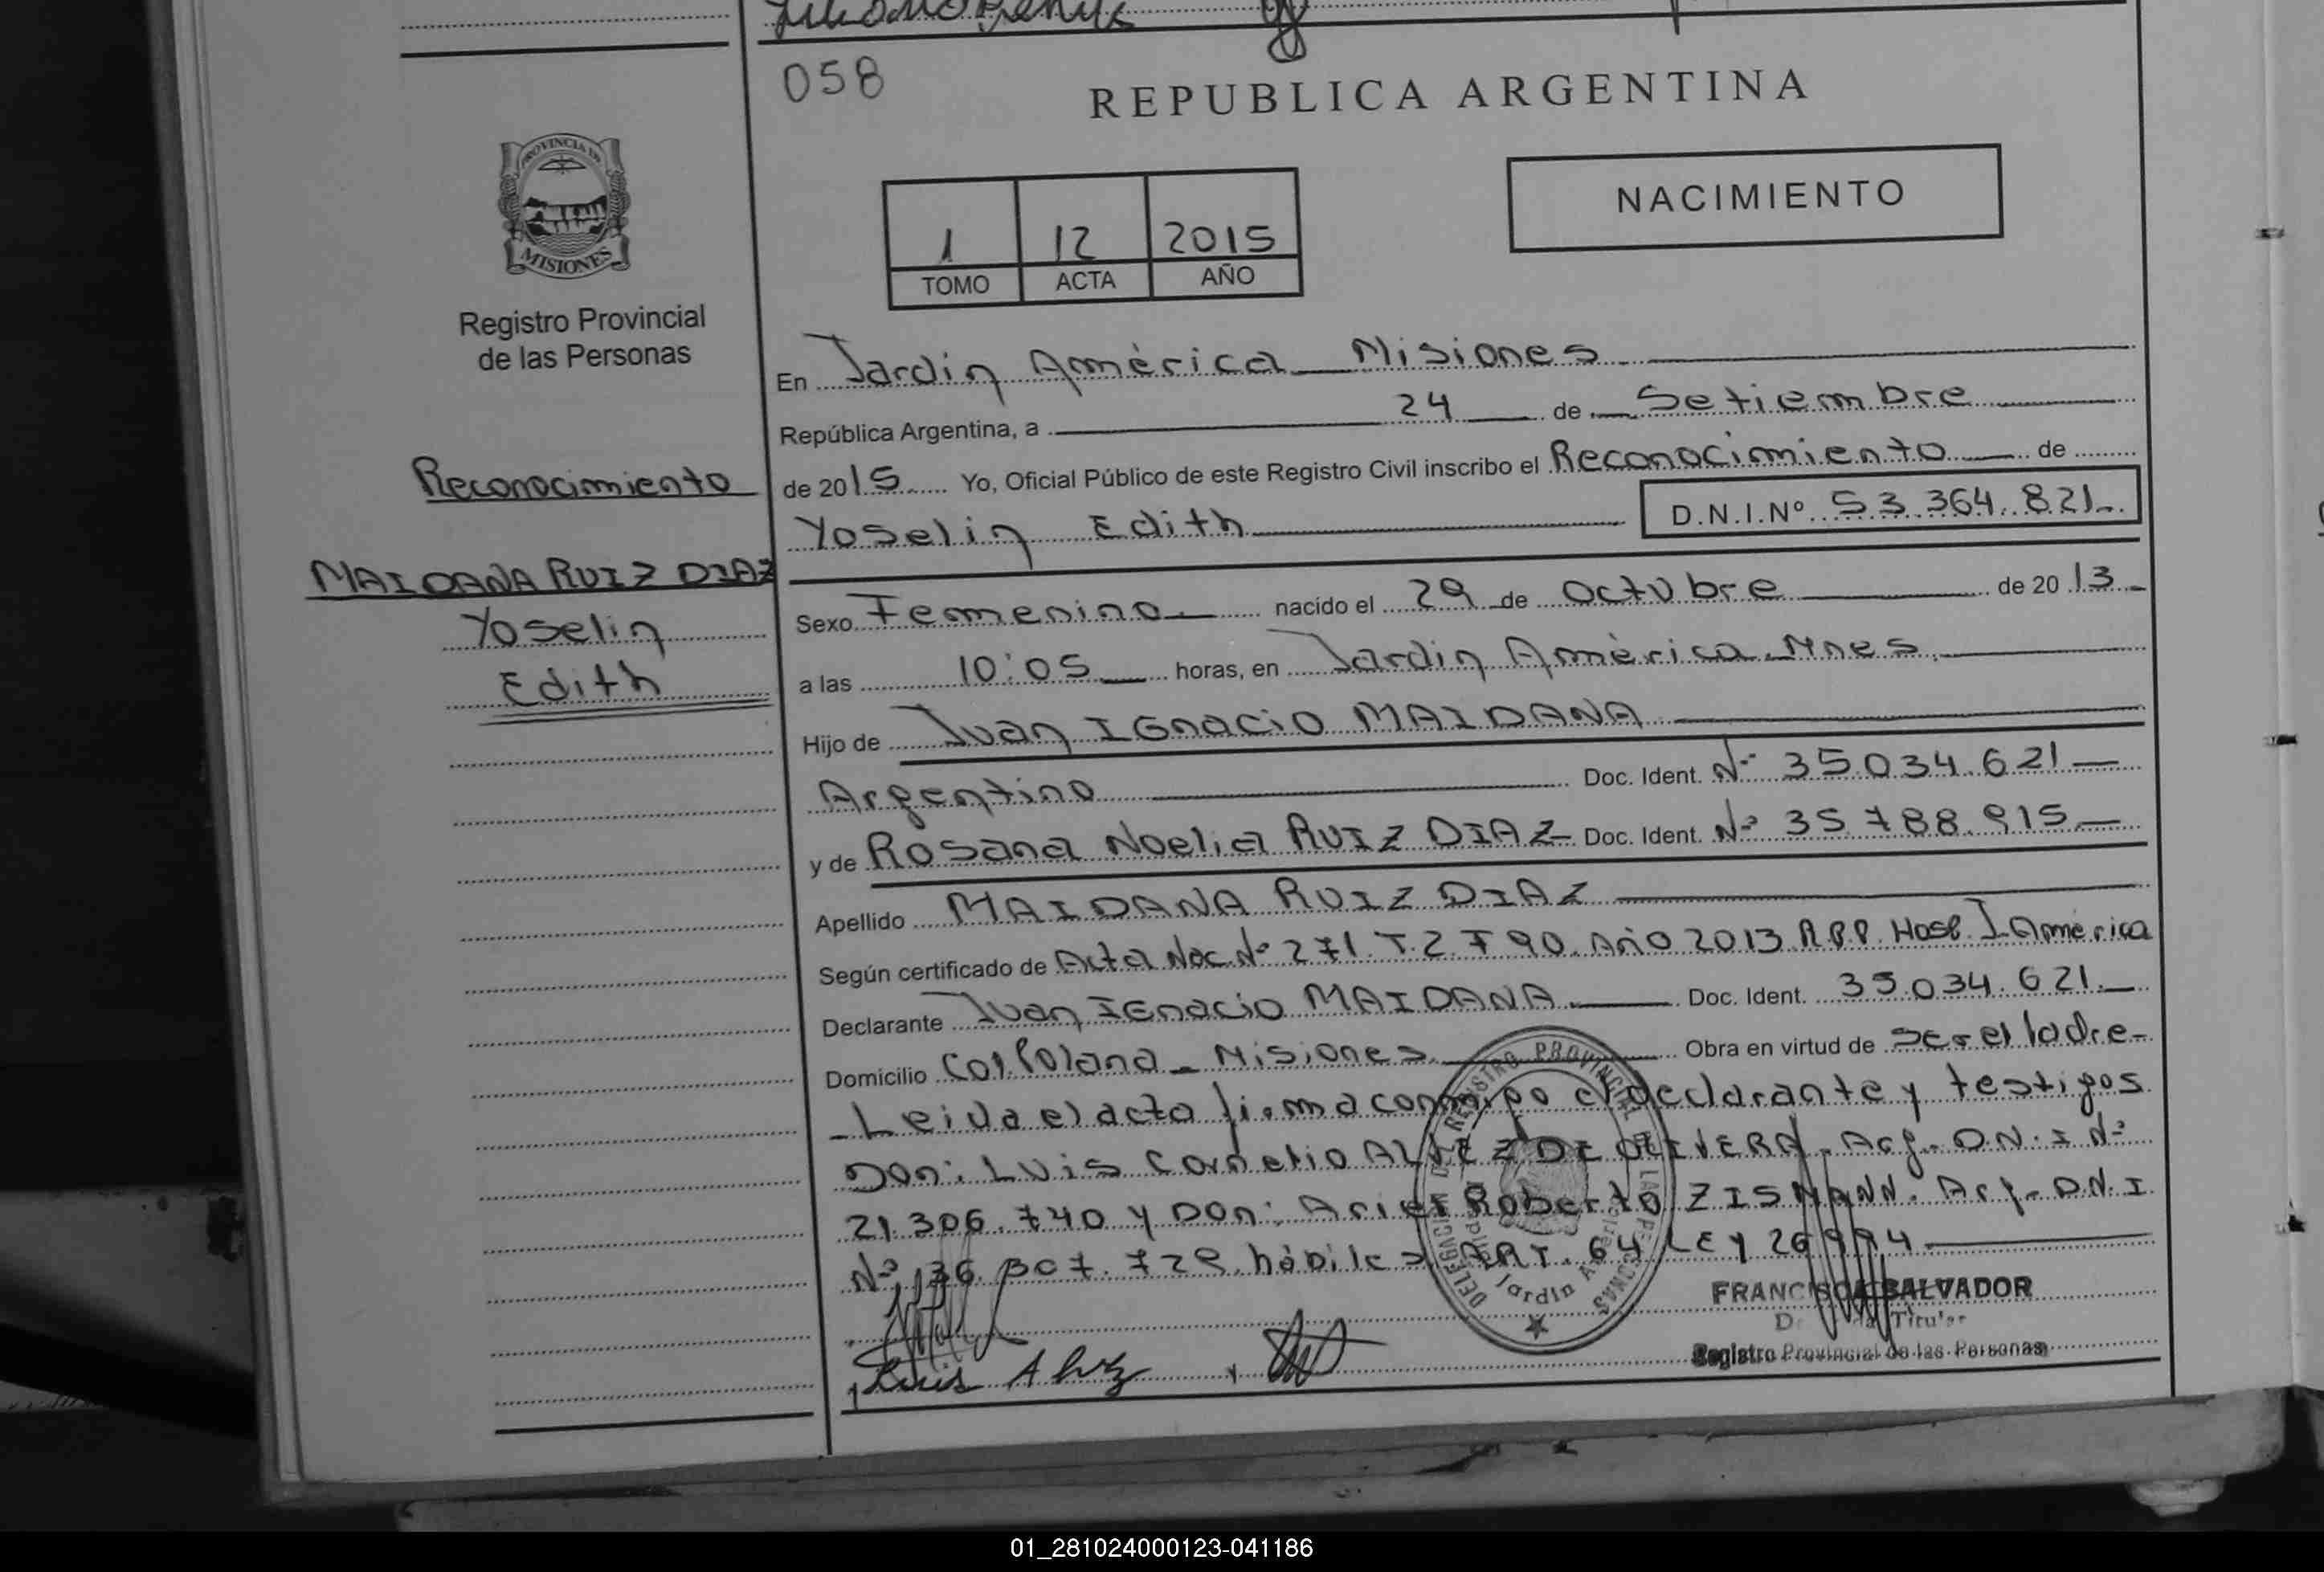 058
REPUBLICA ARGENTINA
NACIMIENTO
PROVINCIA DE
MISIONES
Registro Provincial
de las Personas
1 12 2015
TOMO ACTA AÑO
En Jardin América Misiones
República Argentina, a 24 de Setiembre
de 2015 Yo, Oficial Público de este Registro Civil inscribo el Reconocimiento de
Yoselin Edith D.N.I.Nº 53 364.821
Reconocimiento
MAIDANA RUIZ DIAZ
Yoselin
Edith
Sexo Femenino nacido el 29 de Octubre de 2013
a las 10:05 horas, en Jardin América Mnes.
Hijo de Juan Ignacio MAIDANA
Argentino Doc. Ident. Nº 35034.621
y de Rosana Noelia RUIZ DIAZ Doc. Ident. Nº 35 788.915
Apellido MAIDANA RUIZ DIAZ
Según certificado de Acta Nac. Nº 271 T.2 F 90. Año 2013 RPP. Hosp J. América
Declarante Juan Ignacio MAIDANA Doc. Ident. 35034.621.
Domicilio Col. Polana - Misiones Obra en virtud de ser el Padre
Leida el acta firma conmigo el declarante y testigos
Don: Luis Cornelio ALVEZ DE OLIVERA. Arg. D.N.I Nº
21.306.740 y Don: Ariel Roberto ZISMANN. Arg. D.N.I
Nº 36.307.729 hábiles ART. 64 LEY 26994
DELEGACION REGISTRO PROVINCIAL DE LAS PERSONAS
Jardin América
FRANCISCA SALVADOR
Titular
Registro Provincial de las Personas
Luis Alvz
01_281024000123-041186